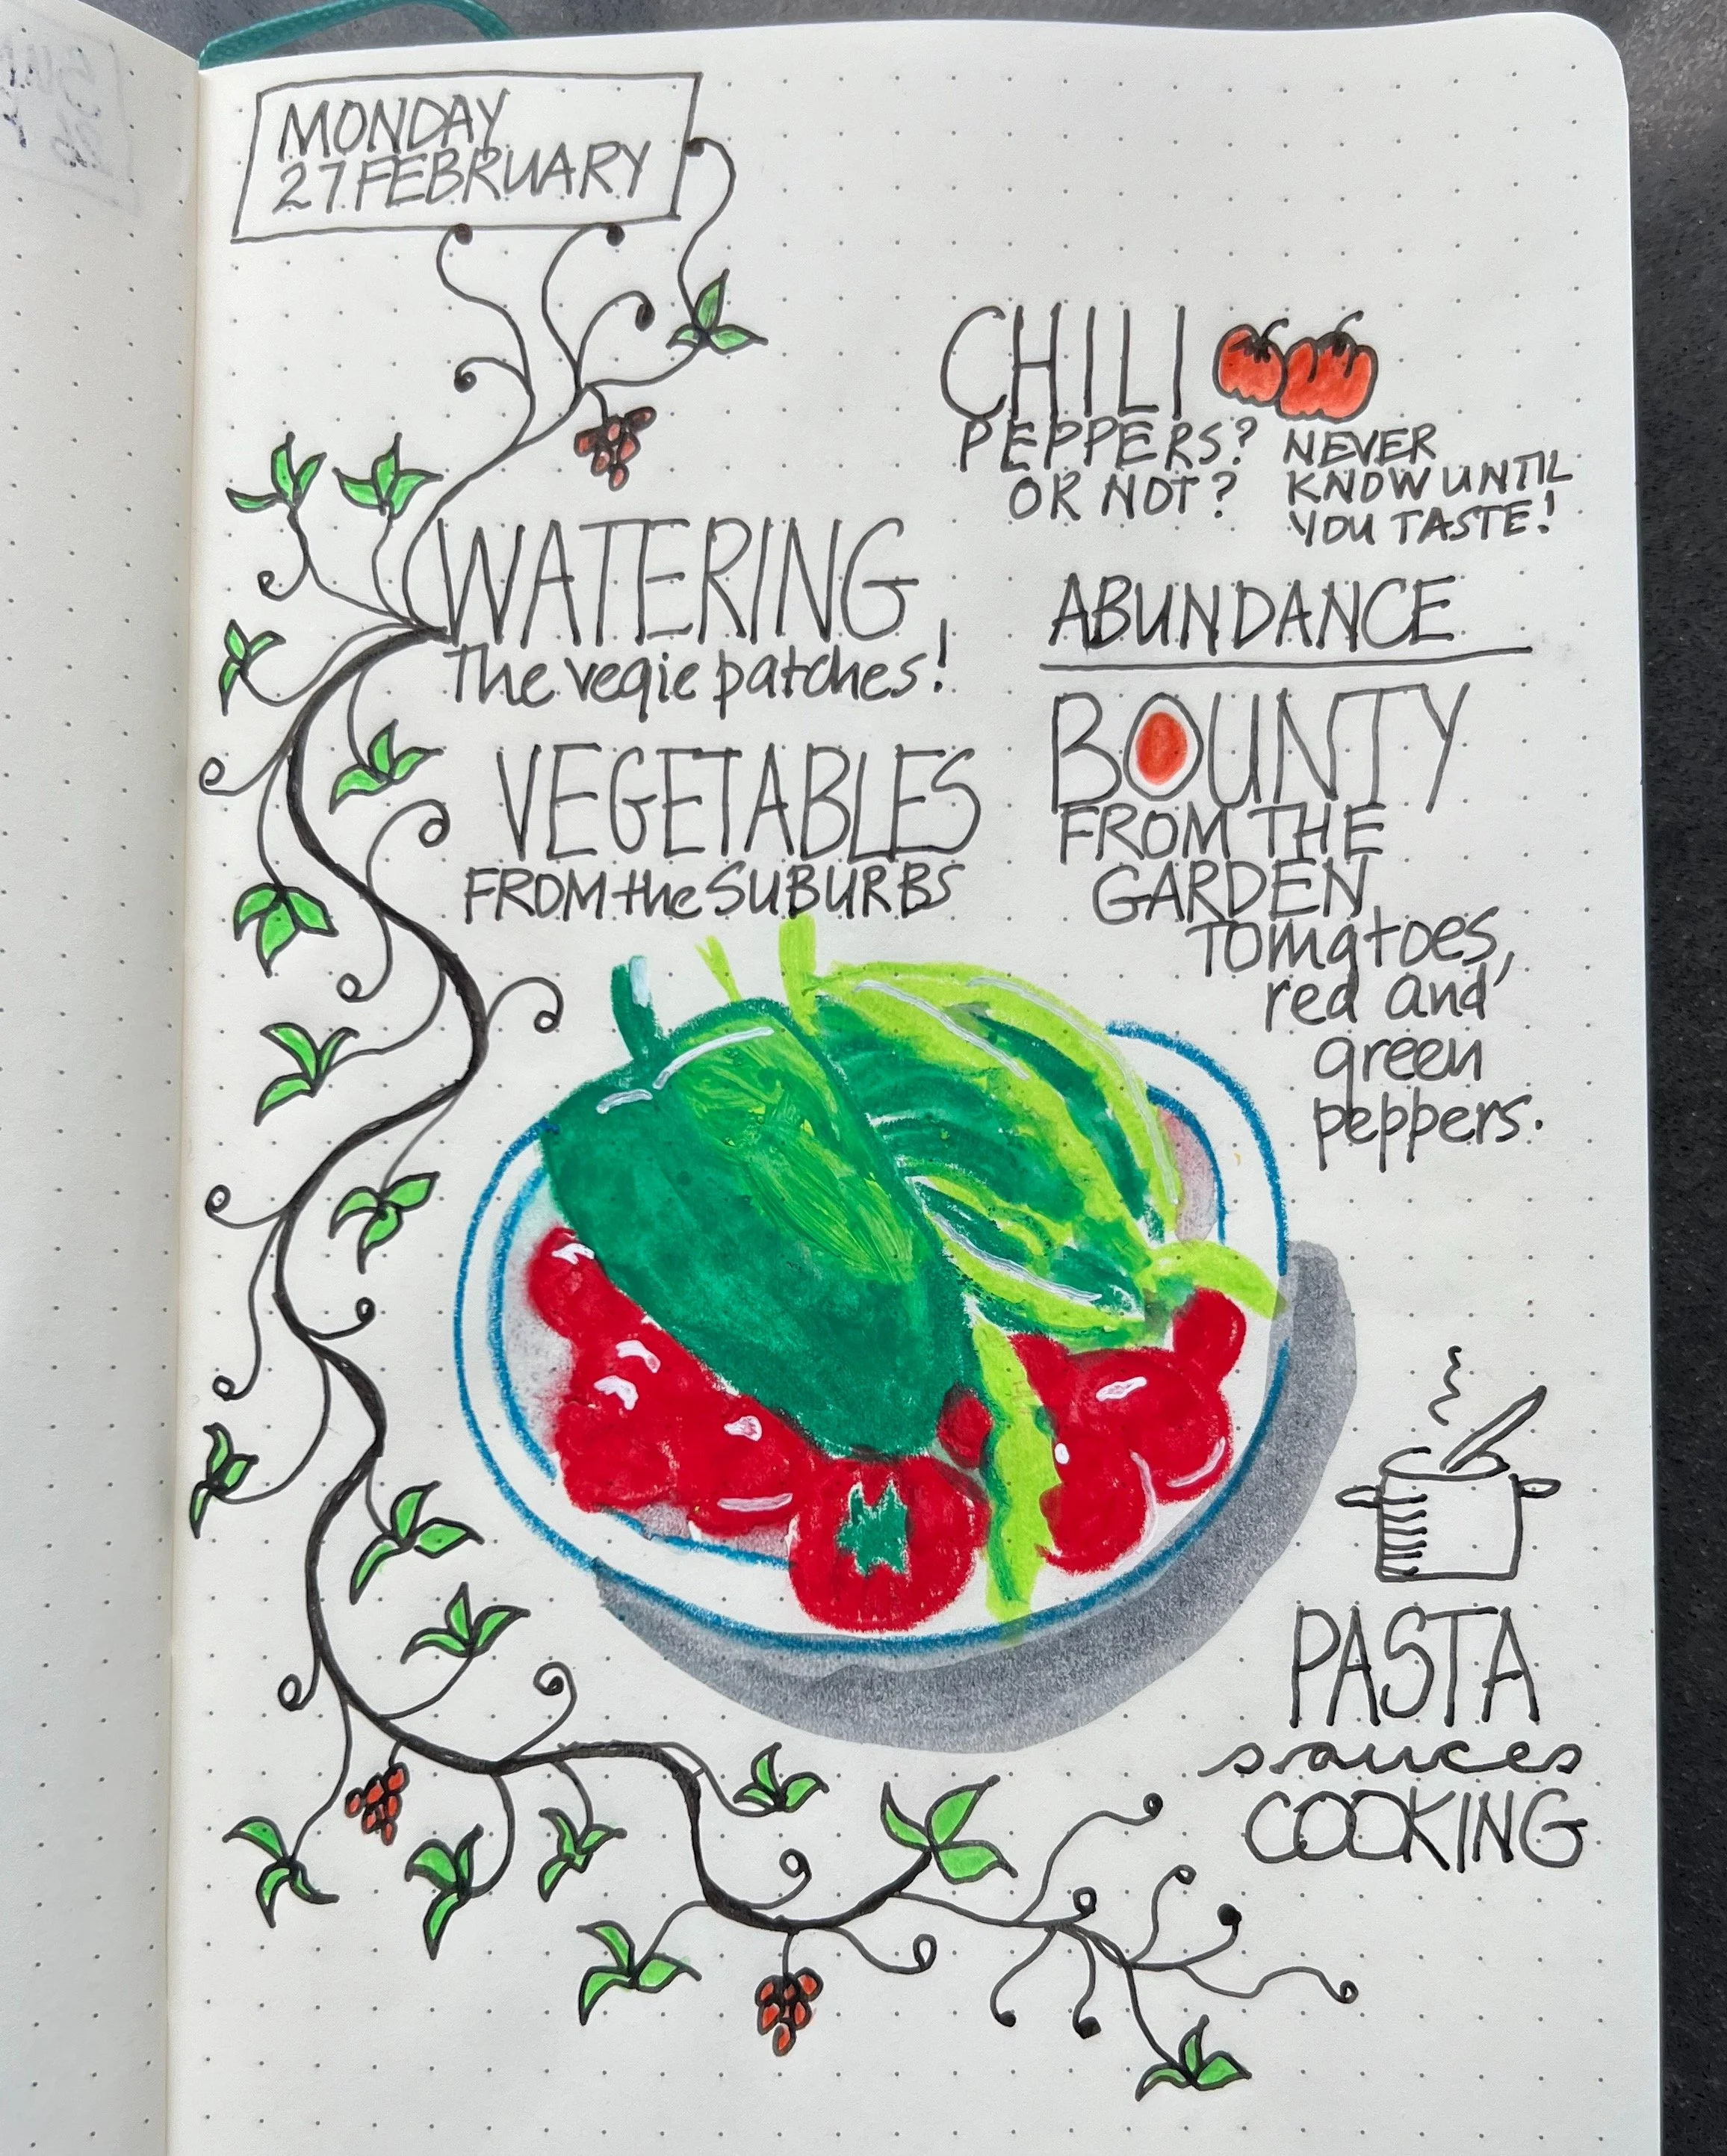 MONDAY
27 FEBRUARY
CHILI
PEPPERS?
OR NOT?
NEVER
KNOW UNTIL
YOU TASTE!
WATERING
The vegie patches!
VEGETABLES
FROM the SUBURBS
ABUNDANCE
BOUNTY
FROM THE
GARDEN
Tomatoes,
red and
green
peppers.
PASTA
sauces
COOKING